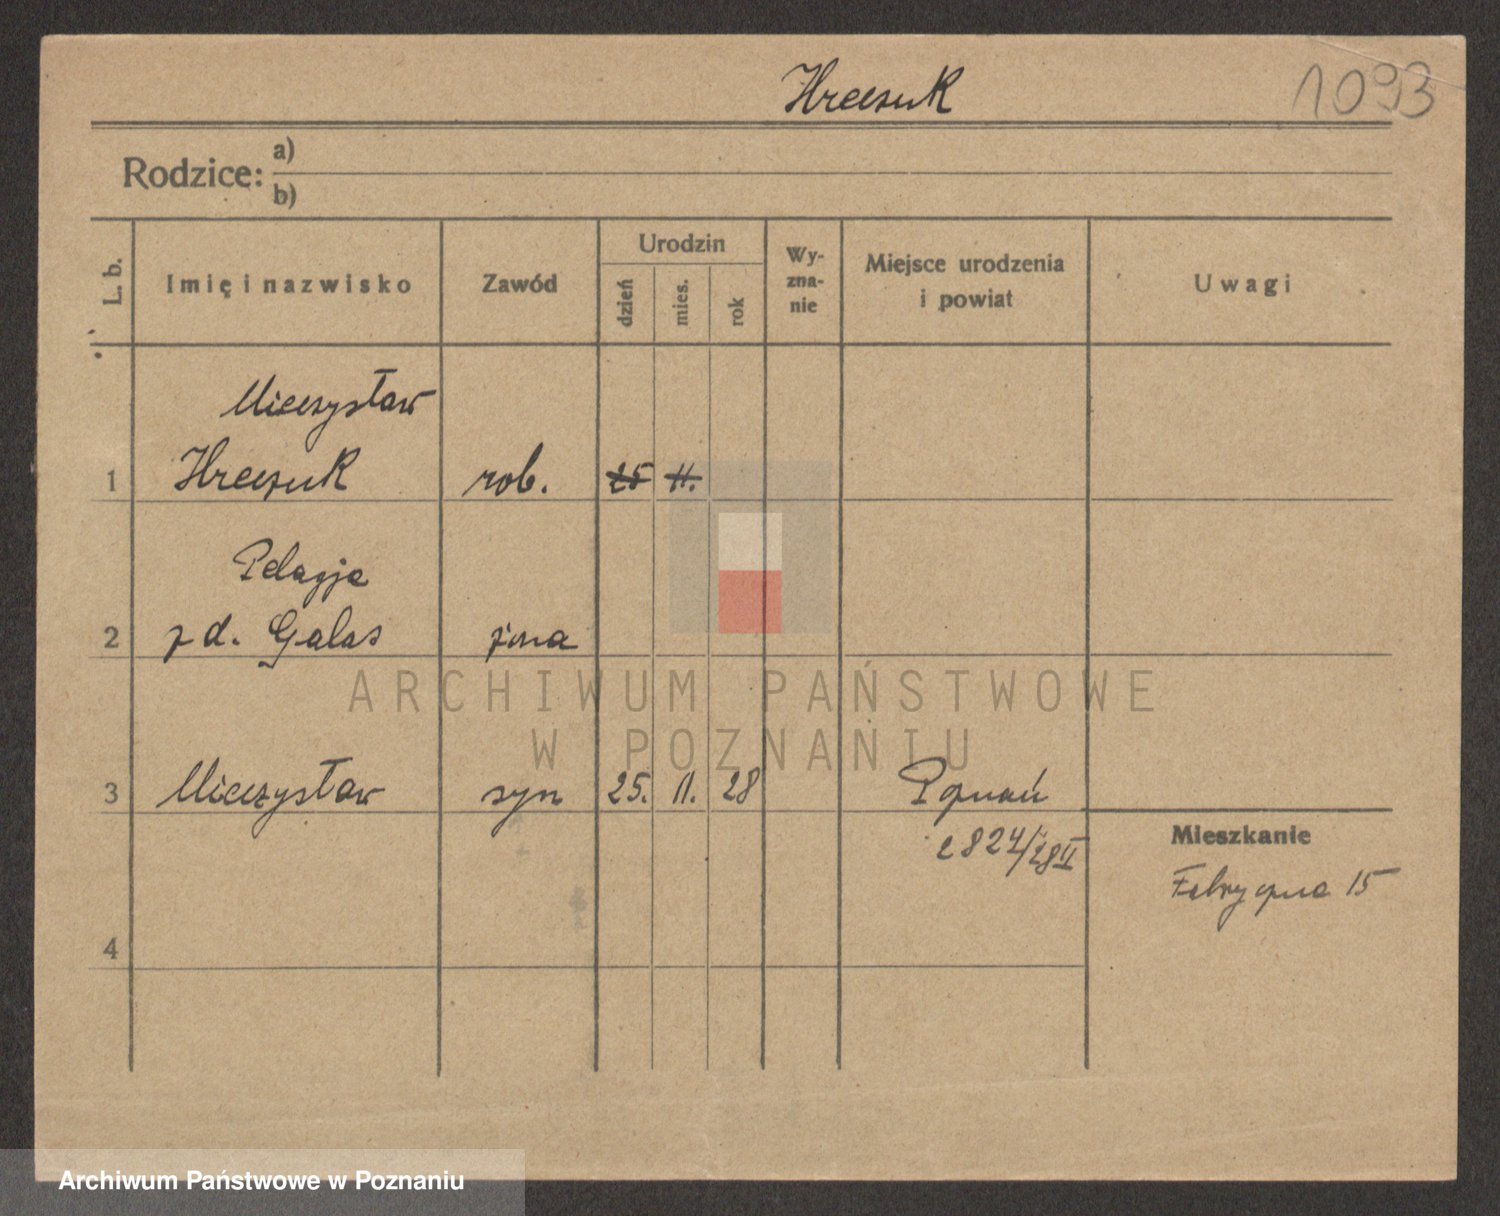 Hreczuk 1093
Rodzice: a)
b)
L. b. Imię i nazwisko Zawód Urodzin dzień mies. rok Wy-zna-nie Miejsce urodzenia i powiat Uwagi
Mieczysław
1 Hreczuk rob. 25 11.
Pelagja
2 z d. Galas żona
ARCHIWUM PAŃSTWOWE
W POZNANIU
3 Mieczysław syn 25. 11. 28 Poznań
2824/28 II
Mieszkanie
Fabryczna 15
4
Archiwum Państwowe w Poznaniu